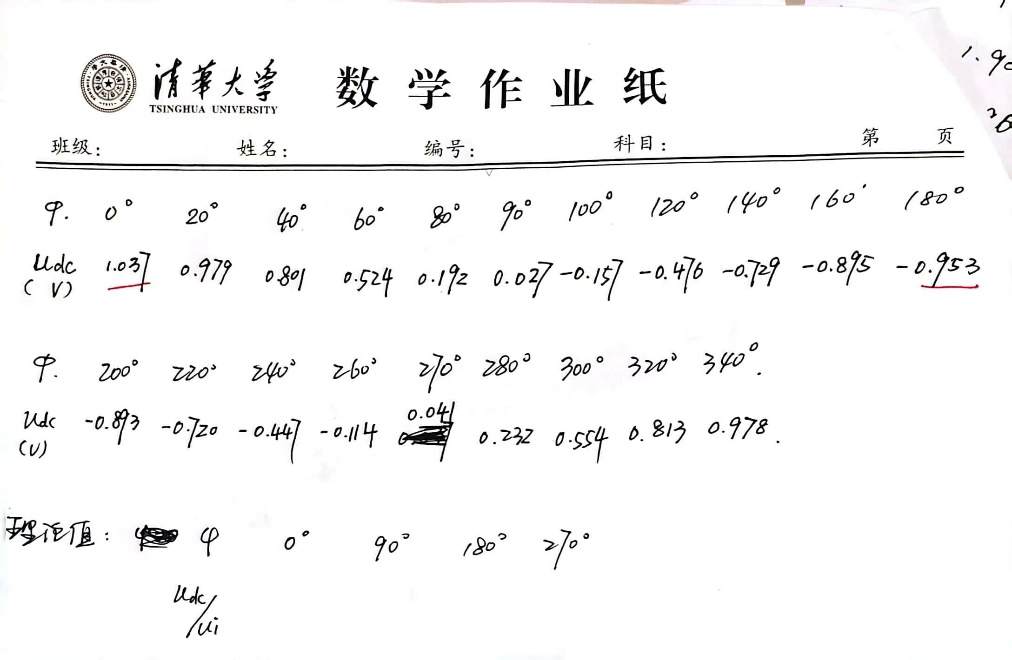 清華大学 数学作业纸
TSINGHUA UNIVERSITY
班级: 姓名: 编号: 科目: 第 页
φ. 0° 20° 40° 60° 80° 90° 100° 120° 140° 160° 180°
Udc (V) 1.037 0.979 0.801 0.524 0.192 0.027 -0.157 -0.476 -0.729 -0.895 -0.953
φ. 200° 220° 240° 260° 270° 280° 300° 320° 340°.
Udc (V) -0.893 -0.720 -0.447 -0.114 0.041 0.232 0.554 0.813 0.978.
理论值: φ 0° 90° 180° 270°
Udc/Ui